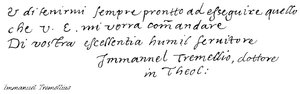 & di tenirmi sempre prontto ad esseguire quello
che V. E. mi vorra com̃andare
Di vostra escellentia humil servitore
Immannel Tremellio, dottore
in Theol:
Immanuel Tremellius